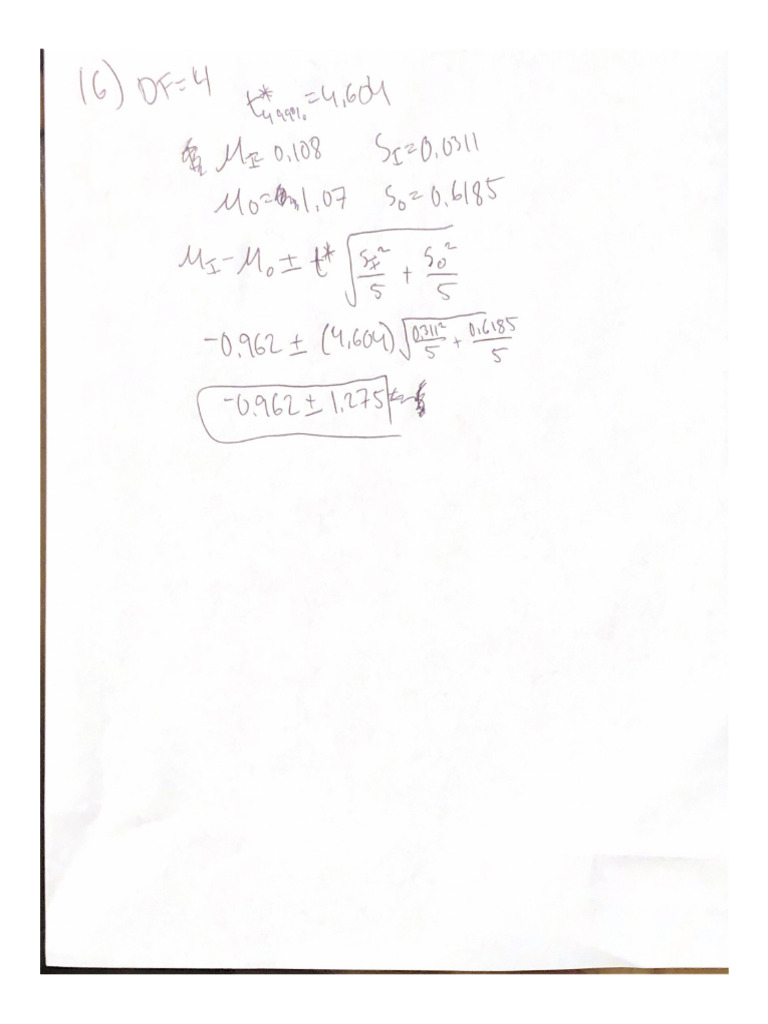 16) DF=4 t*₄ ₉₉% = 4.604
μ_I = 0.108 S_I=0.0311
μ_0= 1.07 S_0=0.6185
μ_I - μ_0 ± t* √(S_I²/5 + S_0²/5)
-0.962 ± (4.604) √(0.311²/5 + 0.6185/5)
-0.962 ± 1.275